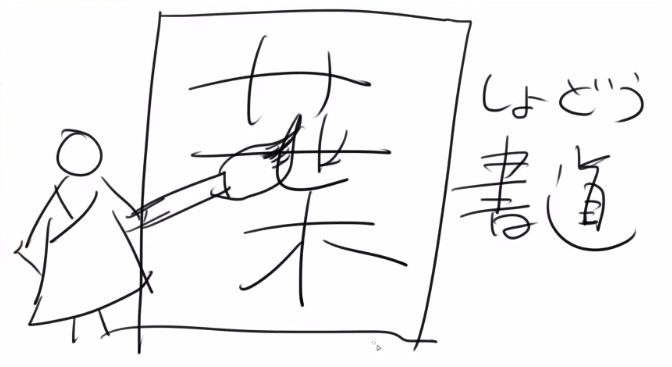 葉
しょどう
書道